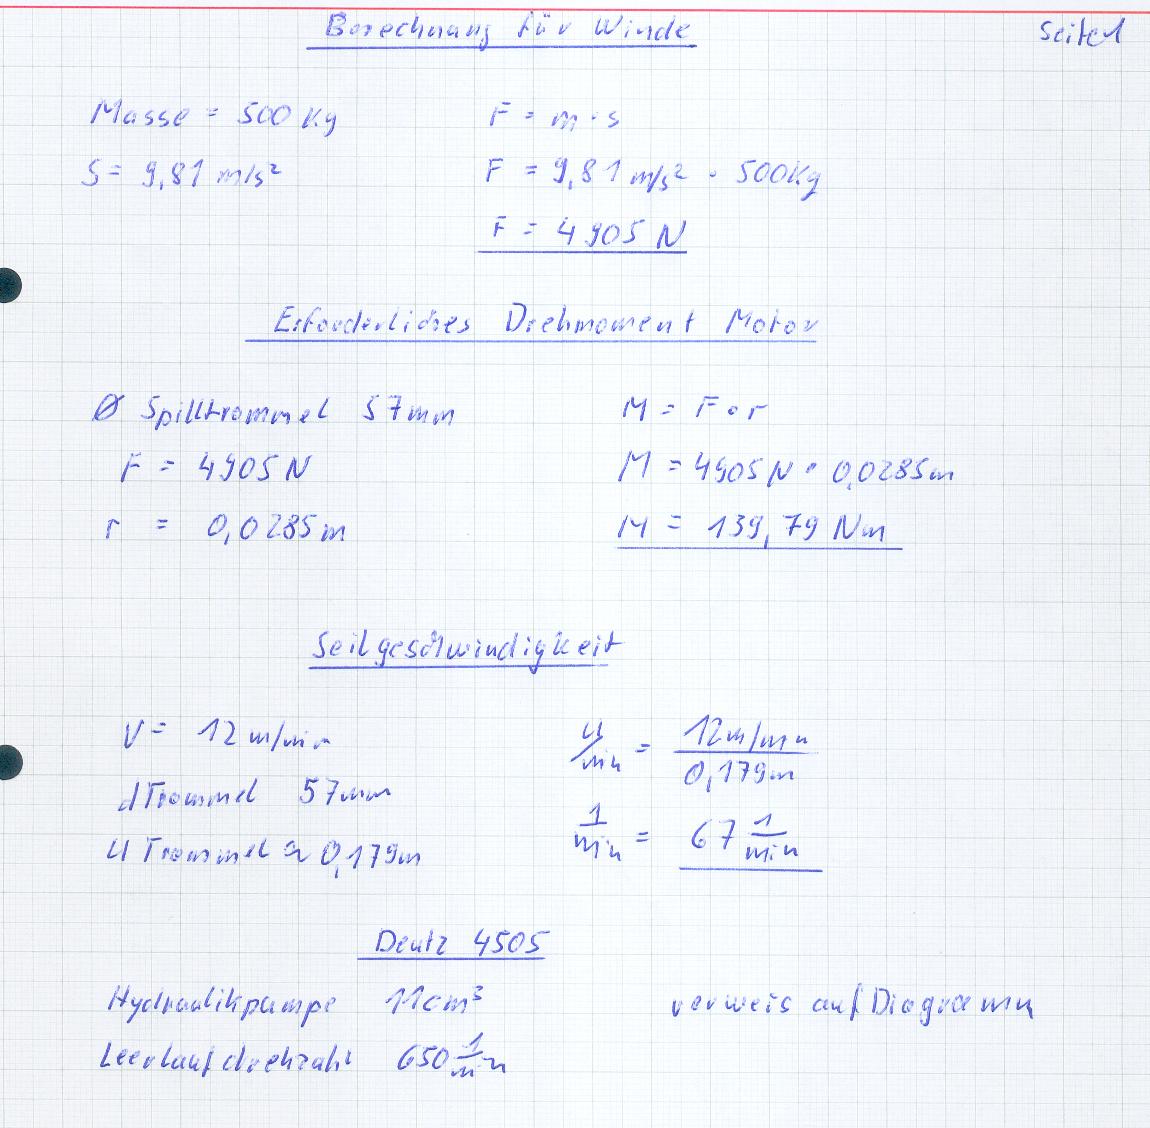 Berechnung für Winde
Seite 1
Masse = 500 Kg
F = m · s
S = 9,81 m/s²
F = 9,81 m/s² · 500Kg
F = 4905 N
Erforderliches Drehmoment Motor
Ø Spilltrommel 57mm
M = F · r
F = 4905 N
M = 4905 N · 0,0285m
r = 0,0285m
M = 139,79 Nm
Seilgeschwindigkeit
V = 12 m/min
U/min = 12m/min / 0,179m
d Trommel 57mm
U Trommel ≈ 0,179m
1/min = 67 1/min
Deutz 4505
Hydraulikpumpe 11cm³
verweis auf Diagramm
Leerlaufdrehzahl 650 1/min